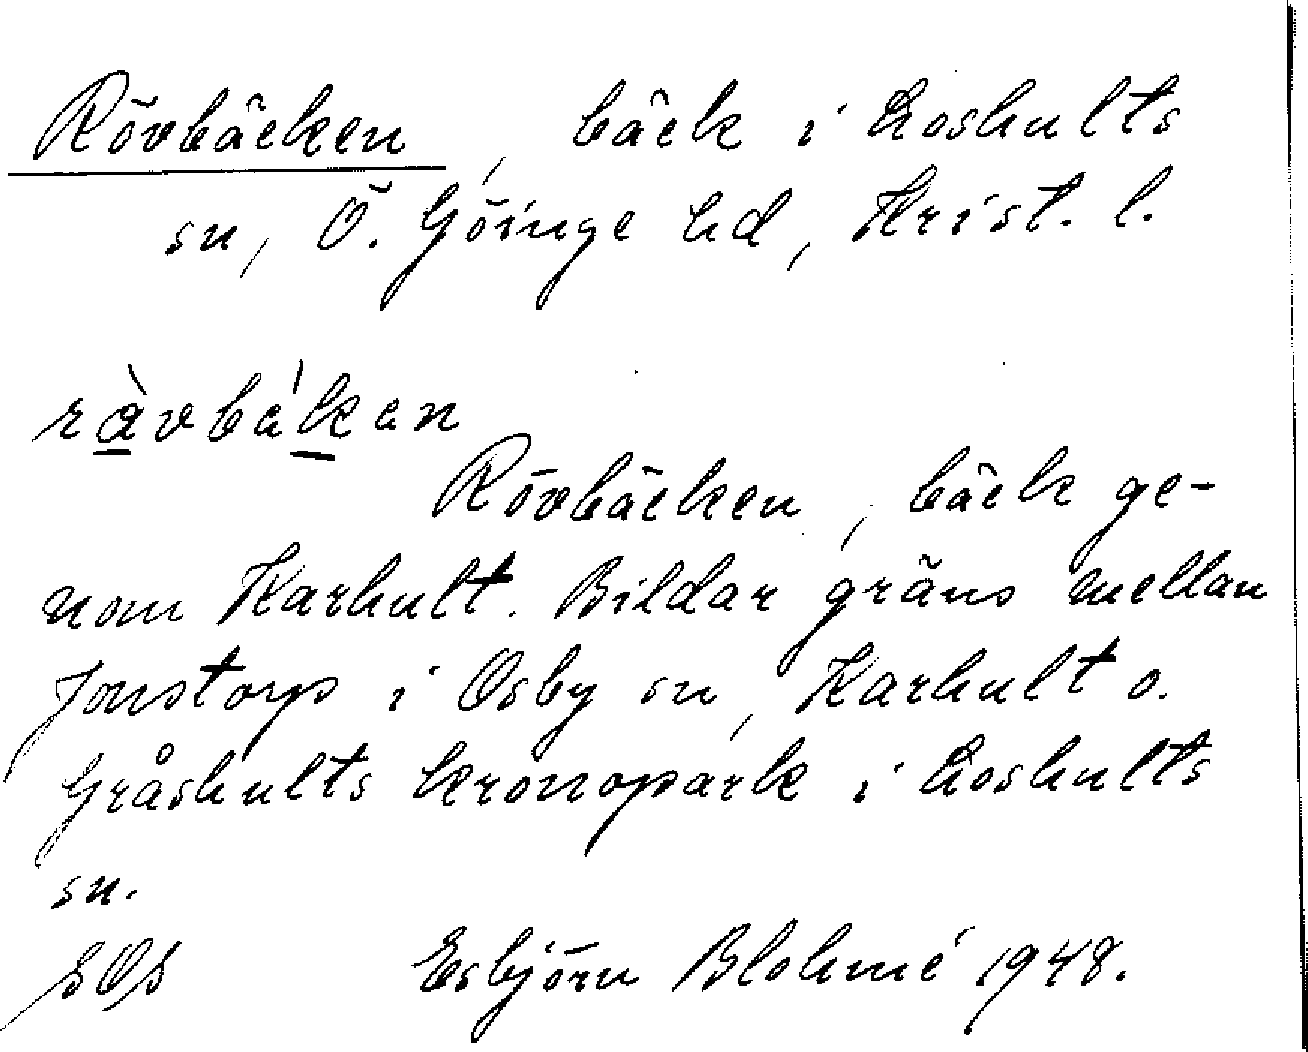 Rövbäcken, bäck i Loshults
sn, Ö. Göinge hd, Krist. l.
Rövbäcken, bäck ge-
nom Karhult. Bildar gräns mellan
Jonstorp i Osby sn, Karhult o.
Gråshults kronopark i Loshults
sn.
Esbjörn Blohmé 1948.